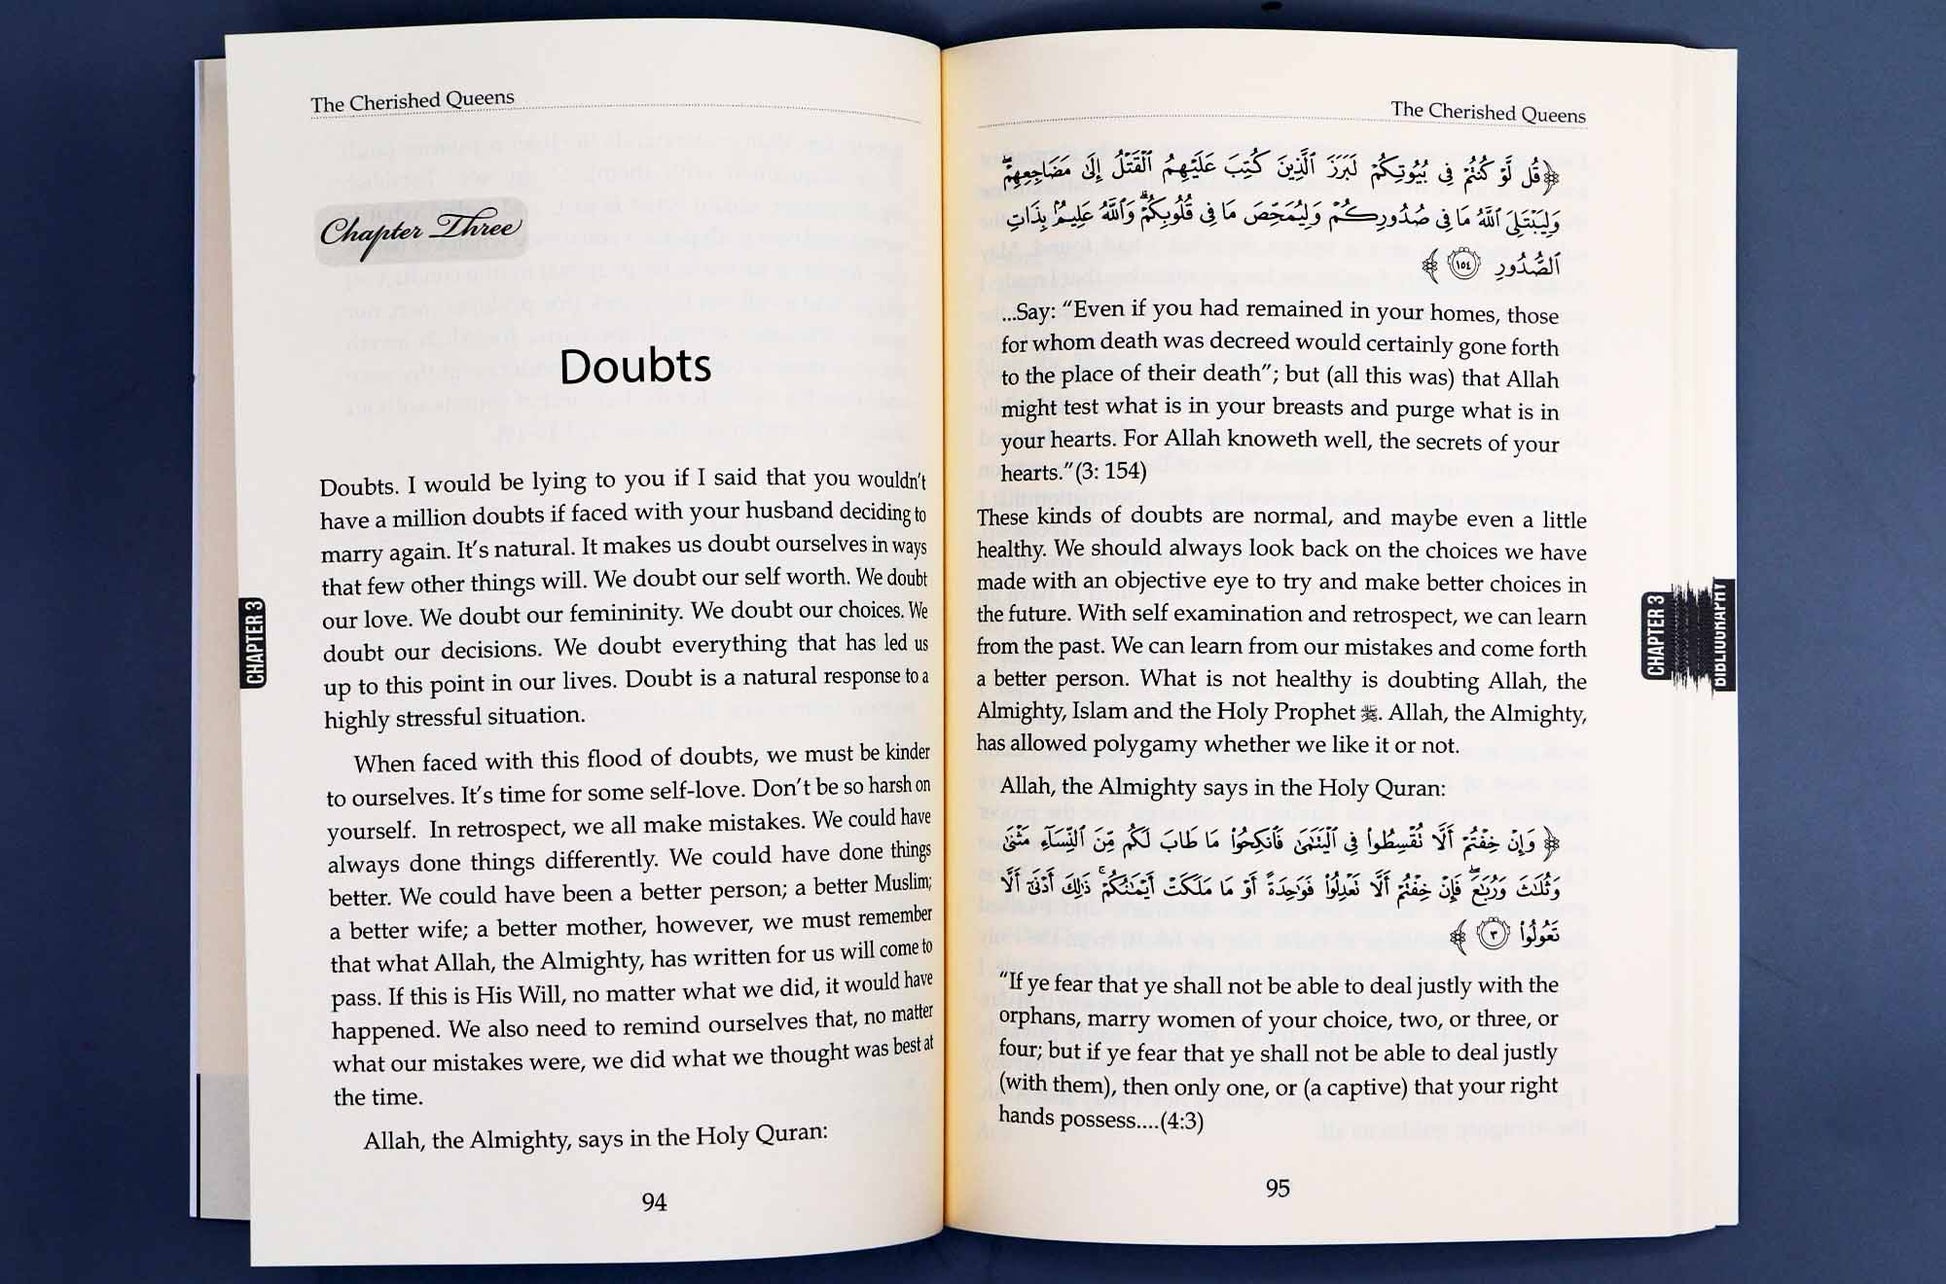 The Cherished Queens
Chapter Three
Doubts
Doubts. I would be lying to you if I said that you wouldn't
have a million doubts if faced with your husband deciding to
marry again. It's natural. It makes us doubt ourselves in ways
that few other things will. We doubt our self worth. We doubt
our love. We doubt our femininity. We doubt our choices. We
doubt our decisions. We doubt everything that has led us
up to this point in our lives. Doubt is a natural response to a
highly stressful situation.
When faced with this flood of doubts, we must be kinder
to ourselves. It's time for some self-love. Don't be so harsh on
yourself. In retrospect, we all make mistakes. We could have
always done things differently. We could have done things
better. We could have been a better person; a better Muslim;
a better wife; a better mother, however, we must remember
that what Allah, the Almighty, has written for us will come to
pass. If this is His Will, no matter what we did, it would have
happened. We also need to remind ourselves that, no matter
what our mistakes were, we did what we thought was best at
the time.
Allah, the Almighty, says in the Holy Quran:
94
CHAPTER 3
The Cherished Queens
﴿قُل لَّوْ كُنتُمْ فِى بُيُوتِكُمْ لَبَرَزَ ٱلَّذِينَ كُتِبَ عَلَيْهِمُ ٱلْقَتْلُ إِلَىٰ مَضَاجِعِهِمْ ۖ
وَلِيَبْتَلِىَ ٱللَّهُ مَا فِى صُدُورِكُمْ وَلِيُمَحِّصَ مَا فِى قُلُوبِكُمْ ۗ وَٱللَّهُ عَلِيمٌۢ بِذَاتِ
ٱلصُّدُورِ ١٥٤ ﴾
...Say: "Even if you had remained in your homes, those
for whom death was decreed would certainly gone forth
to the place of their death"; but (all this was) that Allah
might test what is in your breasts and purge what is in
your hearts. For Allah knoweth well, the secrets of your
hearts."(3: 154)
These kinds of doubts are normal, and maybe even a little
healthy. We should always look back on the choices we have
made with an objective eye to try and make better choices in
the future. With self examination and retrospect, we can learn
from the past. We can learn from our mistakes and come forth
a better person. What is not healthy is doubting Allah, the
Almighty, Islam and the Holy Prophet ﷺ. Allah, the Almighty,
has allowed polygamy whether we like it or not.
Allah, the Almighty says in the Holy Quran:
﴿ وَإِنْ خِفْتُمْ أَلَّا تُقْسِطُوا۟ فِى ٱلْيَتَٰمَىٰ فَٱنكِحُوا۟ مَا طَابَ لَكُم مِّنَ ٱلنِّسَآءِ مَثْنَىٰ
وَثُلَٰثَ وَرُبَٰعَ ۖ فَإِنْ خِفْتُمْ أَلَّا تَعْدِلُوا۟ فَوَٰحِدَةً أَوْ مَا مَلَكَتْ أَيْمَٰنُكُمْ ۚ ذَٰلِكَ أَدْنَىٰٓ أَلَّا
تَعُولُوا۟ ٣ ﴾
"If ye fear that ye shall not be able to deal justly with the
orphans, marry women of your choice, two, or three, or
four; but if ye fear that ye shall not be able to deal justly
(with them), then only one, or (a captive) that your right
hands possess....(4:3)
95
CHAPTER 3
BIBLIOGRAPHY